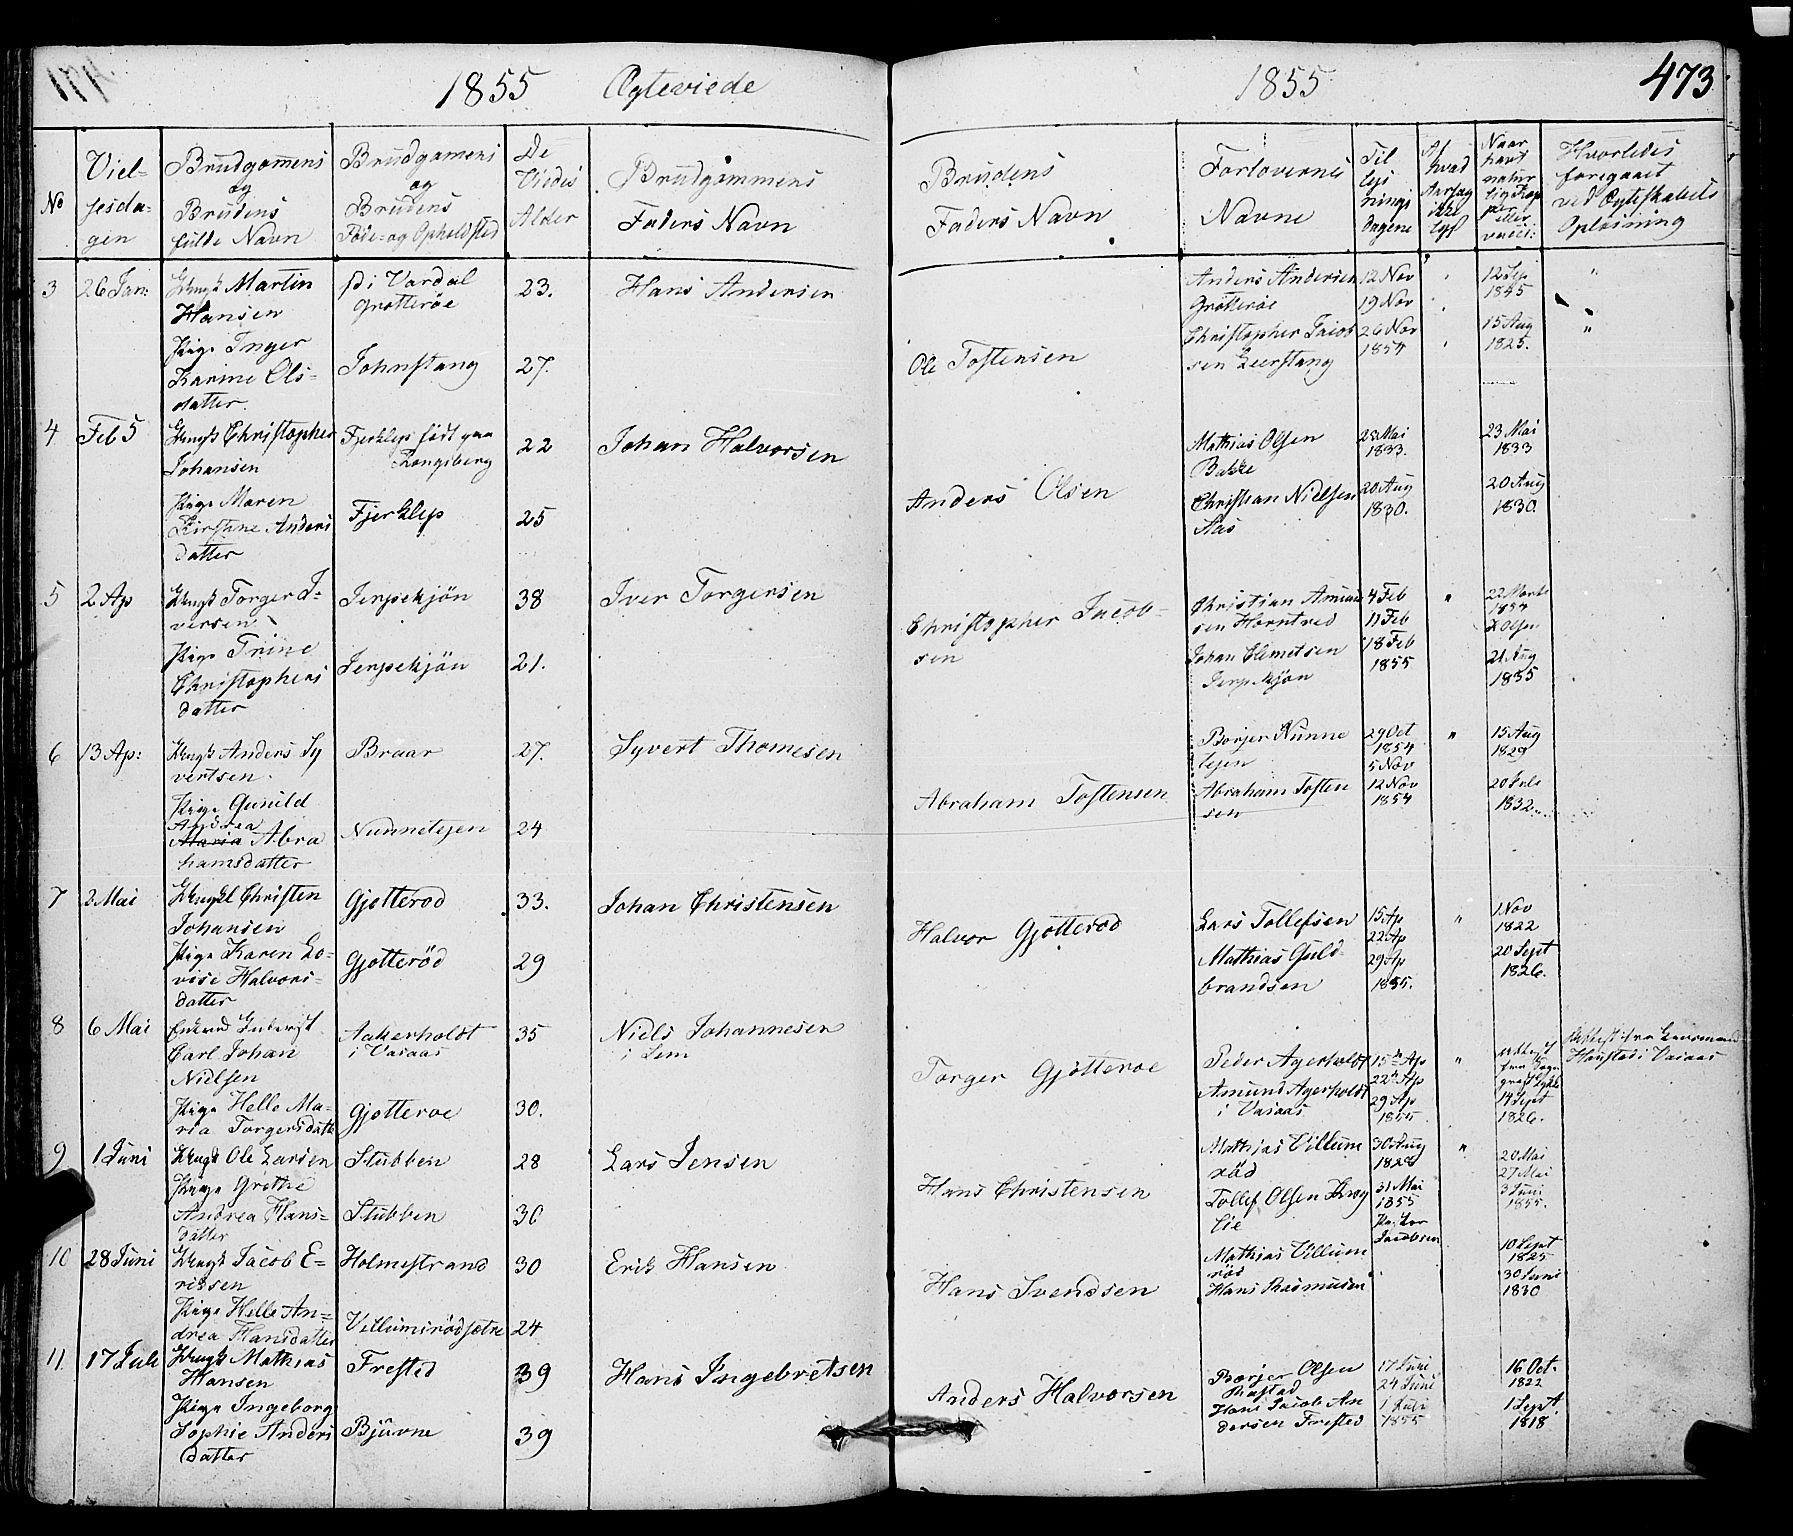 1855 Ægteviede
1855
473
No
Viel-
sesda-
gen
Brudgomens
og
Brudens
fulde Navn
Brudgomens
og
Brudens
Føde- og Opholdsted
De
Viedes
Alder
Brudgommens
Faders Navn
Brudens
Faders Navn
Forlovernes
Navne
Til
lys
nings
dagene
Af
hvad
Aarsag
ikke
lyst
Naar
havt
natur
lig Kop
per
eller
vacci:
Hvorledes
foregaaet
ved Ægteskabets
Opløsning
3 26 Jan: Ungk Martin
Hansen
Grøtterøe
23.
Hans Andersen
Anders Andersen
Grøtterøe
12 Nov
19 Nov
26 Nov
1854
12 Sep
1845
Pige Inger
Karine Ols-
datter.
Johnstang
27.
Ole Tostensen
Christopher Jacob
sen Leerstang
15 Aug
1825.
4 Feb 5 Ungk Christopher
Johansen
Fjerklep født paa
Kongsberg
22
Johan Halvorsen
Mathias Olsen
Bakke
23 Mai
1833.
23 Mai
1833
Pige Maren
Kirstine Anders
datter
Fjerklep
25
Anders Olsen
Christian Nielsen
Aas
20 Aug
1830.
20 Aug
1830.
5 2 Ap Ungk Torger I-
versen
Jerpekjøn
38
Iver Torgersen
Christian Amund
sen Horntved
4 Feb
11 Feb
18 Feb
1855
22 Marts
1854
Pige Trine
Christophers
datter
Jerpekjøn
21.
Christopher Jacob-
sen
Johan Clemetsen
Jerpekjøn
21 Aug
1835
6 13 Ap: Ungk Anders Sy
vertsen.
Braar
27.
Syvert Thomesen
Borjer Nunne
lejen
29 Oct
1854
5 Nov
12 Nov
1854
15 Aug
1829
Pige Gunild
Andrea
Maria Abra
hamsdatter
Nunnelejen
24
Abraham Tostensen
Abraham Tosten
sen
20 Juli
1832
7 2 Mai Ungkl Christen
Johansen
Gjøtterod
33.
Johan Christensen
Lars Tollefsen
15 Ap
22 Ap
29 Ap
1855.
1 Nov
1822
Pige Karen Lo-
vise Halvors-
datter
Gjøtterød
29
Halvor Gjøtterod
Mathias Guld-
brandsen
20 Sept
1826.
8 6 Mai
Carl Johan
Nielsen
Aakerholdt
i Vasaas
35
Niels Johannesen
i Lem
Peder Agerholdt
15 Ap
22 Ap
29 Ap
1855
Attest
fra
Attest fra Leensmand
Haustad i Vasaas
Pige Helle Ma-
ria Torgersdatt
Gjøtteroe
30.
Torger Gjøtteroe
Amund Agerholdt
i Vasaas
14 Sept
1826.
9 1 Juni Ungk Ole Larsen
Stubben
28
Lars Jensen
Mathias Villum
rød
30 Aug
1828
20 Mai
27 Mai
3 Juni
1855.
Pige Grethe
Andrea Hans-
datter
Stubben
30
Hans Christensen
Tollef Olsen Krog
lie
31 Mai
1855
Jacobsen
10 28 Juni Ungk Jacob E-
riksen
Holmestrand
30
Erik Hansen
Mathias Villum
rød
10 Sept
1825
Pige Helle An-
drea Hansdatter
Villumsrødsetre
24
Hans Svendsen
Hans Rasmusen
30 Juni
1830
11 17 Juli Ungk Mathias
Hansen
Frested
39
Hans Ingebretsen
Borjer Olsen
Rastad
17 Juni
24 Juni
1 Juli
1855
16 Oct.
1822
Pige Ingeborg
Sophie Anders
datter
Bjüvne
39
Anders Halvorsen
Hans Jacob An
dersen Frested
1 Sept
1818